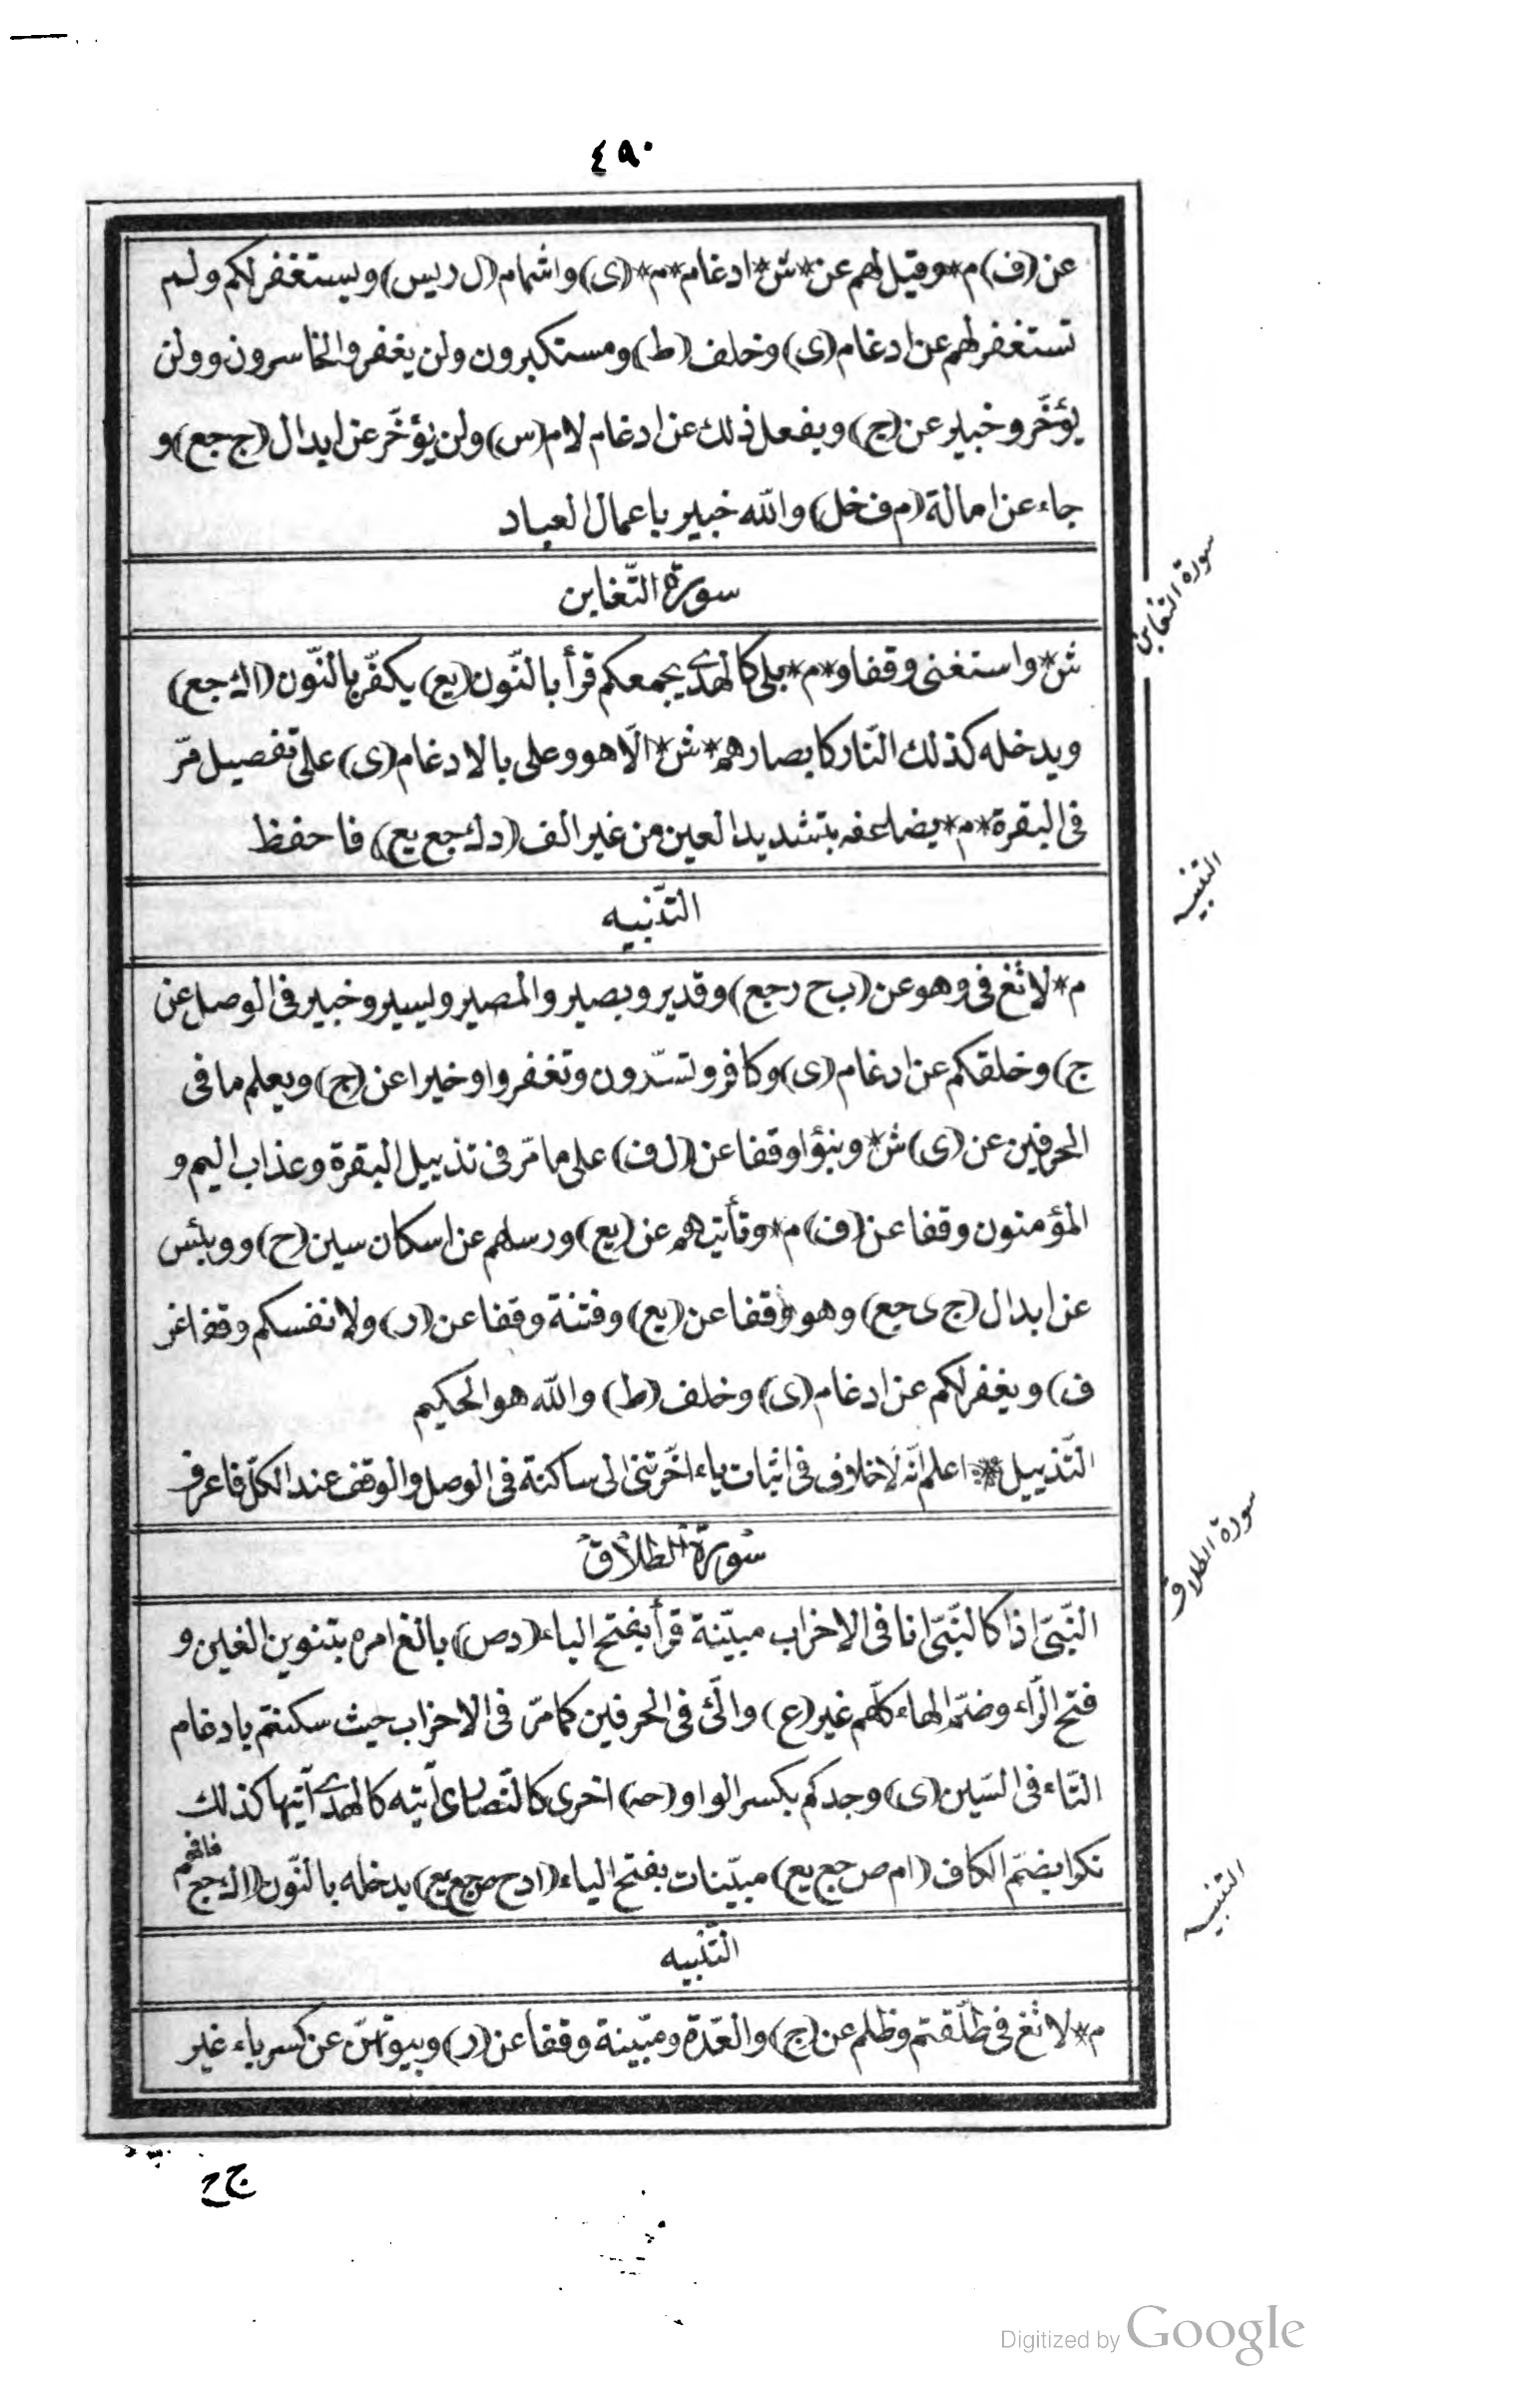 ٤٩٠
عن (ف) م* وقيل لهم عن *ش* ادغام *م* (ى) واشمام (ل ريس) ويستغفر لكم ولم
تستغفر لهم عن ادغام (ى) وخلف (ط) ومستكبرون ولن يغفر والخاسرون وولن
يؤخّر وخبير عن (ج) ويفعل ذلك عن ادغام لام (س) ولن يؤخّر عن ابدال (ج جع) و
جاء عن امالة (م ف خل) والله خبير باعمال العباد
سورة التّغابن
سورة التغابن
ش* واستغنى وقفا و *م* بلى كالهدى يجمعكم قرأ بالنّون (يع) يكفّر بالنّون (اك جع)
ويدخله كذلك النّار كابصارهم *ش* الّا هو وعلى بالادغام (ى) على تفصيل مرّ
فى البقرة *م* يضاعفه بتشديد العين من غير الف (د ك جع يع) فاحفظ
التّنبيه
التنبيه
م* لا تغ فى وهو عن (ب ح ر جع) وقدير وبصير والمصير ويسير وخبير فى الوصل عن
ج) وخلقكم عن ادغام (ى) وكافر وتسرّون وتغفروا وخيرا عن (ج) ويعلم ما فى
الحرفين عن (ى) ش* ونبؤا وقفا عن (ل ف) على ما مرّ فى تذييل البقرة وعذاب اليم و
المؤمنون وقفا عن (ف) م* وتأتيهم عن (يع) ورسلهم عن اسكان سين (ح) ووبئس
عن ابدال (ج ى جع) وهو وقفا عن (يع) وفتنة وقفا عن (ر) ولانفسكم وقفا عن
ف) ويغفر لكم عن ادغام (ى) وخلف (ط) والله هو الحكيم
التّذييل * اعلم انّه لا خلاف فى اثبات ياء اخّرتنى الى ساكنة فى الوصل والوقف عند الكلّ فاعرف
سورة الطلاق
سورة الطلاق
النّبىّ اذا كالنّبىّ انا فى الاحزاب مبيّنة قرأ بفتح الياء (د ص) بالغ امره بتنوين الغين و
فتح الرّاء وضمّ الهاء كلّهم غير (ع) والّئ فى الحرفين كما مرّ فى الاحزاب حيث سكنتم بادغام
الثّاء فى السّين (ى) وجدكم بكسر الواو (حه) اخرى كالنّصارى آتيه كالهدى آتيها كذلك
نكرا بضمّ الكاف (ا م ص جع يع) مبيّنات بفتح الياء (ا د ح ص جع يع) يدخله بالنّون (اك جع
فافهم
التّنبيه
التنبيه
م* لا تغ فى طلّقتم وظلم عن (ج) والعدّة ومبيّنة وقفا عن (ر) وبيوتهنّ عن كسر باء غير
ج ح
Digitized by Google